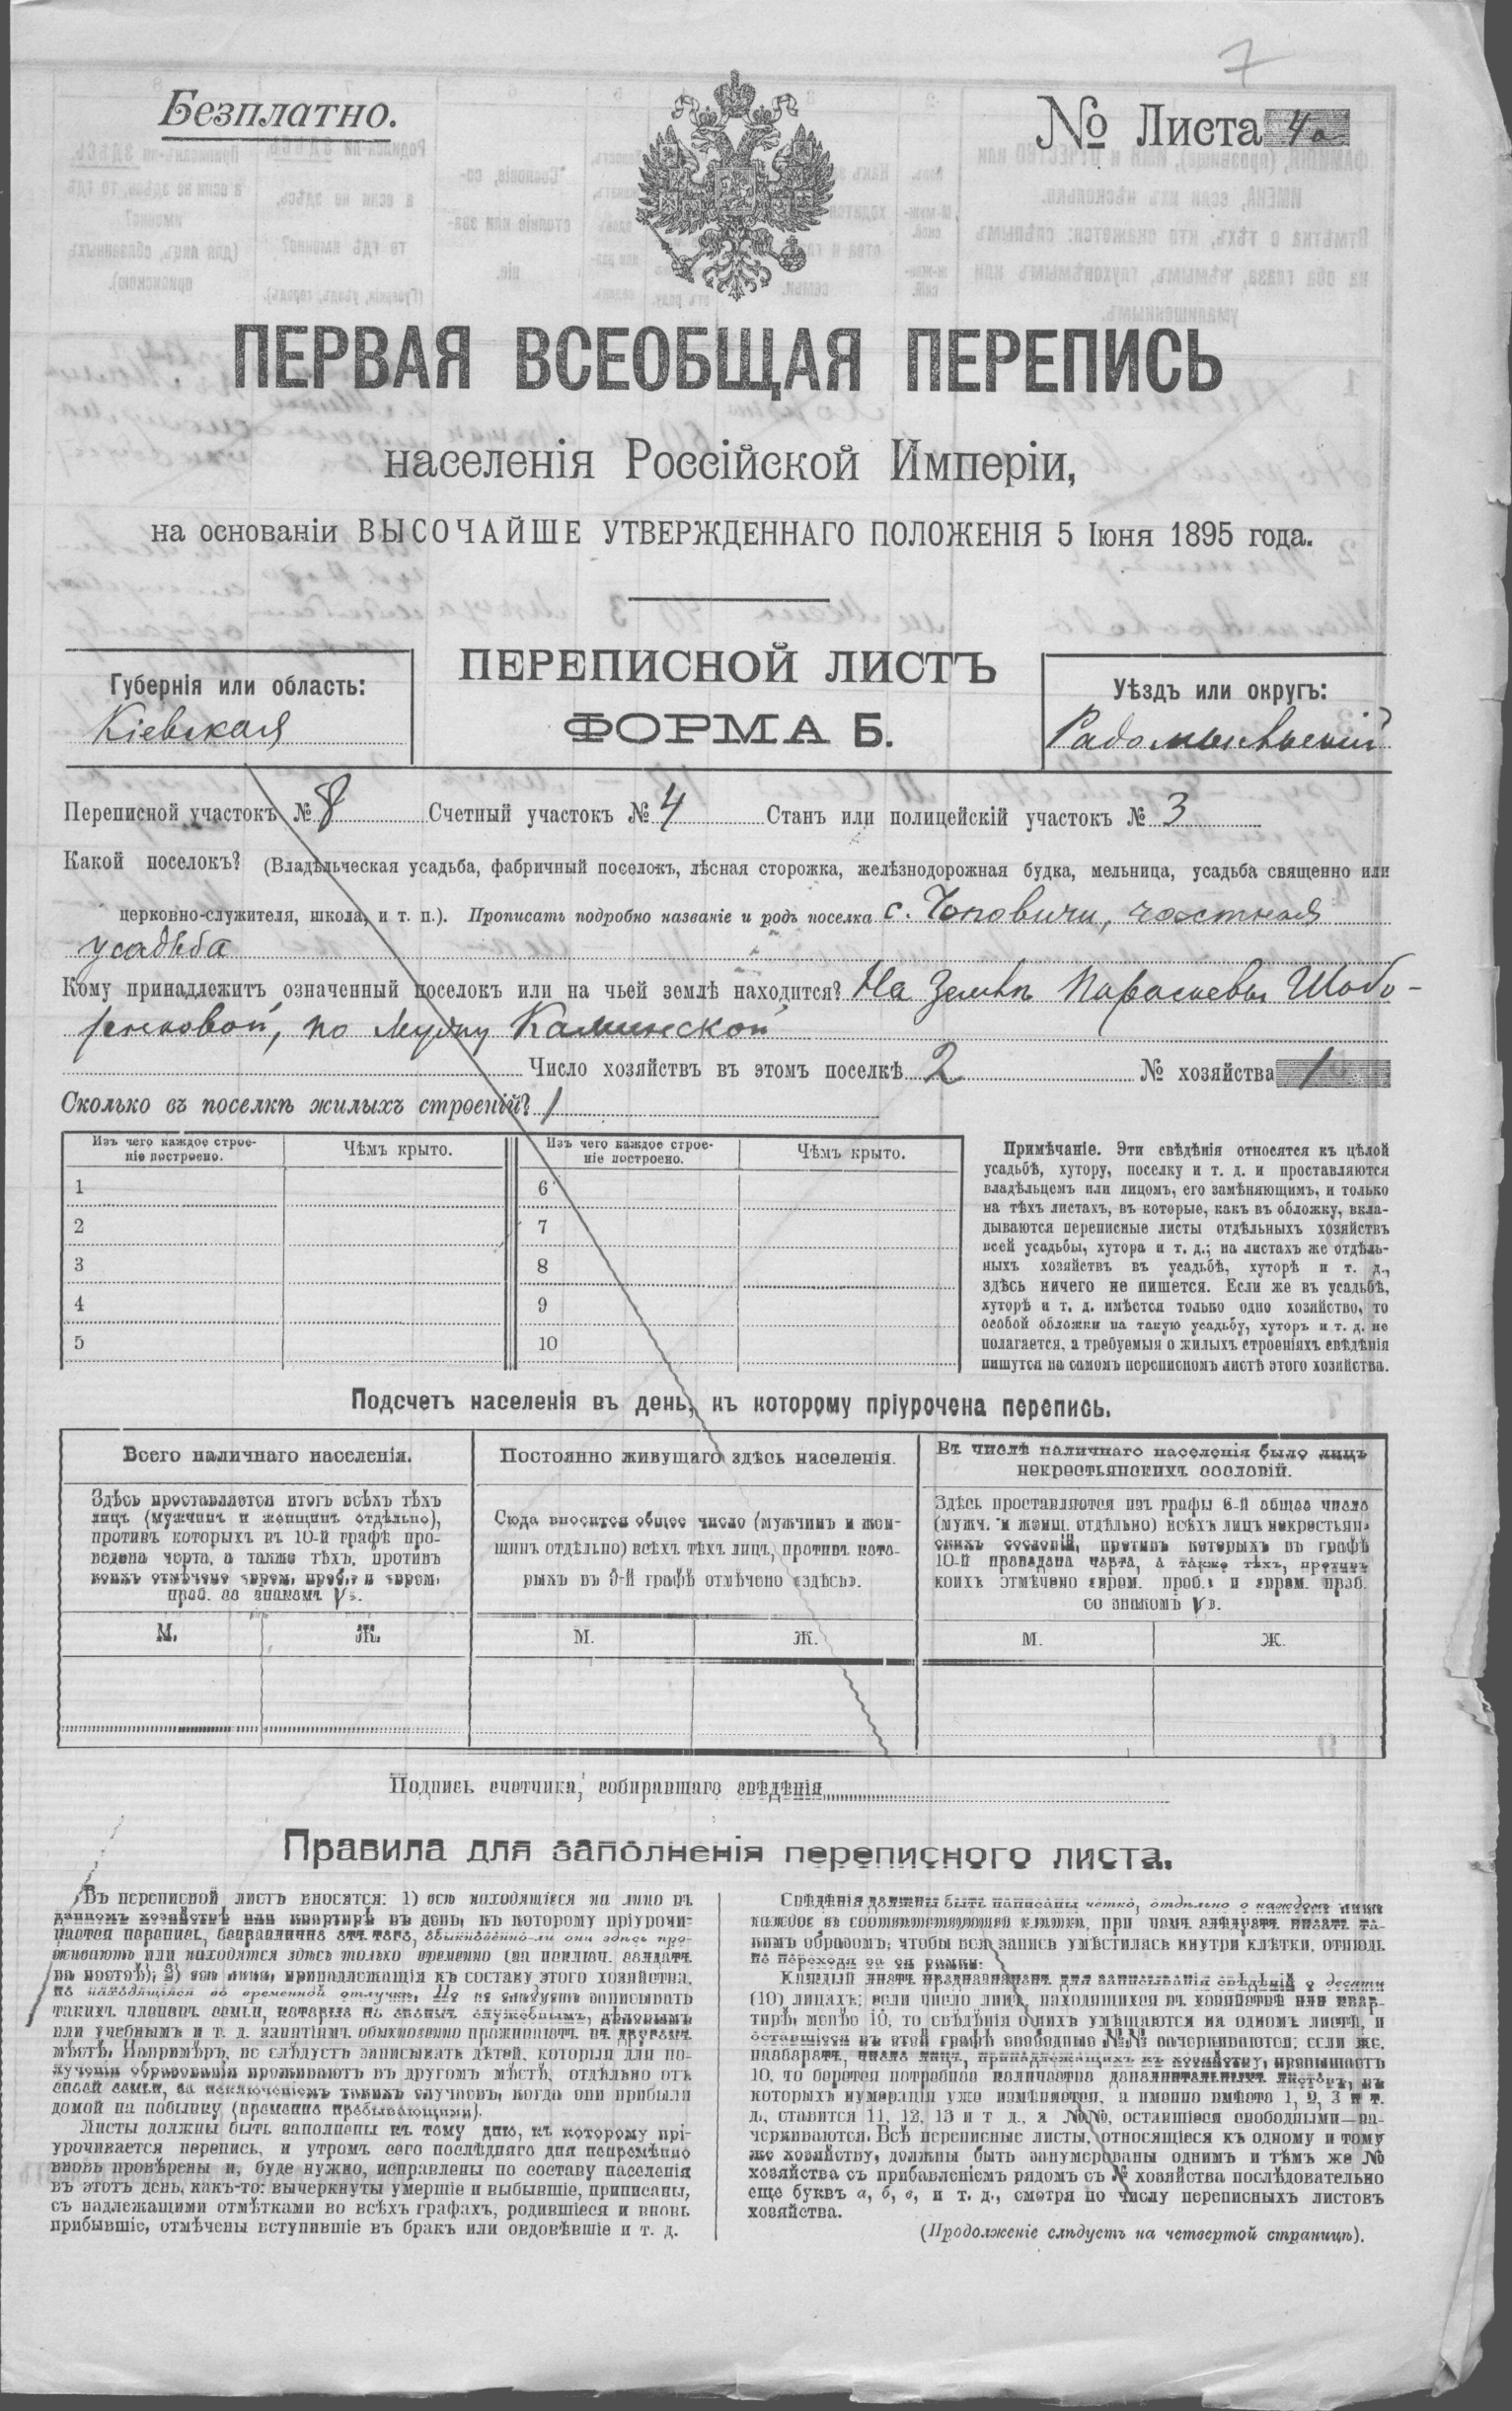 7
Безплатно.
№ Листа 4а
ПЕРВАЯ ВСЕОБЩАЯ ПЕРЕПИСЬ
населенія Россійской Имперіи,
на основаніи ВЫСОЧАЙШЕ УТВЕРЖДЕННАГО ПОЛОЖЕНІЯ 5 Іюня 1895 года.
ПЕРЕПИСНОЙ ЛИСТЪ
ФОРМА Б.
Губернія или область:
Кіевская
Уѣздъ или округъ:
Радомысльскій
Переписной участокъ № 8 Счетный участокъ № 4 Станъ или полицейскій участокъ № 3
Какой поселокъ? (Владѣльческая усадьба, фабричный поселокъ, лѣсная сторожка, желѣзнодорожная будка, мельница, усадьба священно или
церковно-служителя, школа, и т. п.). Прописать подробно названіе и родъ поселка с. Чоповичи, частная
усадьба
Кому принадлежитъ означенный поселокъ или на чьей землѣ находится? На землѣ Параскевы
по мужу Каминской
Число хозяйствъ въ этомъ поселкѣ 2 № хозяйства 1
Сколько въ поселкѣ жилыхъ строеній? 1
Изъ чего каждое строе- Чѣмъ крыто. Изъ чего каждое строе- Чѣмъ крыто.
ніе построено. ніе построено.
1 6
2 7
3 8
4 9
5 10
Примѣчаніе. Эти свѣдѣнія относятся къ цѣлой
усадьбѣ, хутору, поселку и т. д. и проставляются
владѣльцемъ или лицомъ, его замѣняющимъ, и только
на тѣхъ листахъ, въ которые, какъ въ обложку, вкла-
дываются переписные листы отдѣльныхъ хозяйствъ
всей усадьбы, хутора и т. д.; на листахъ же отдѣль-
ныхъ хозяйствъ въ усадьбѣ, хуторѣ и т. д.,
здѣсь ничего не пишется. Если же въ усадьбѣ,
хуторѣ и т. д. имѣется только одно хозяйство, то
особой обложки на такую усадьбу, хуторъ и т. д. не
полагается, а требуемыя о жилыхъ строеніяхъ свѣдѣнія
пишутся на самомъ переписномъ листѣ этого хозяйства.
Подсчетъ населенія въ день, къ которому пріурочена перепись.
Всего наличнаго населенія.
Здѣсь проставляется итогъ всѣхъ тѣхъ
лицъ (мужчинъ и женщинъ отдѣльно),
противъ которыхъ въ 10-й графѣ про-
ведена черта, а также тѣхъ, противъ
коихъ отмѣчено «врем. преб.» и «врем.
преб. со знакомъ V».
М. Ж.
Постоянно живущаго здѣсь населенія.
Сюда вносится общее число (мужчинъ и жен-
щинъ отдѣльно) всѣхъ тѣхъ лицъ, противъ кото-
рыхъ въ 9-й графѣ отмѣчено «здѣсь».
М. Ж.
Въ числѣ наличнаго населенія было лицъ
некрестьянскихъ сословій.
Здѣсь проставляются изъ графы 6-й общее число
(мужч. и женщ. отдѣльно) всѣхъ лицъ некрестьян-
скихъ сословій, противъ которыхъ въ графѣ
10-й проведена черта, а также тѣхъ, противъ
коихъ отмѣчено «врем. преб.» и «врем. преб.
со знакомъ V».
М. Ж.
Подпись счетчика, собиравшаго свѣдѣнія
Правила для заполненія переписного листа.
Въ переписной листъ вносятся: 1) всѣ находящіеся на лицо въ
данномъ хозяйствѣ или квартирѣ въ день, къ которому пріурочи-
вается перепись, безразлично отъ того, обыкновенно-ли они здѣсь про-
живаютъ или находятся здѣсь только временно (за исключ. солдатъ
на постоѣ); 2) всѣ лица, принадлежащія къ составу этого хозяйства,
но находящіяся во временной отлучкѣ. Но не слѣдуетъ записывать
такихъ членовъ семьи, которые по своимъ служебнымъ, дѣловымъ
или учебнымъ и т. д. занятіямъ обыкновенно проживаютъ въ другомъ
мѣстѣ. Напримѣръ, не слѣдуетъ записывать дѣтей, которыя для по-
лученія образованія проживаютъ въ другомъ мѣстѣ, отдѣльно отъ
своей семьи, за исключеніемъ такихъ случаевъ, когда они прибыли
домой на побывку (временно пребывающими).
Листы должны быть заполнены къ тому дню, къ которому прі-
урочивается перепись, и утромъ сего послѣдняго дня непремѣнно
вновь провѣрены и, буде нужно, исправлены по составу населенія
въ этотъ день, какъ-то: вычеркнуты умершіе и выбывшіе, приписаны,
съ надлежащими отмѣтками во всѣхъ графахъ, родившіеся и вновь
прибывшіе, отмѣчены вступившіе въ бракъ или овдовѣвшіе и т. д.
Свѣдѣнія должны быть написаны четко, отдѣльно о каждомъ лицѣ
каждое въ соотвѣтствующей клѣткѣ, при чемъ слѣдуетъ писать та-
кимъ образомъ, чтобы вся запись умѣстилась внутри клѣтки, отнюдь
не переходя за ея рамки.
Каждый листъ предназначенъ для записыванія свѣдѣній о десяти
(10) лицахъ; если число лицъ, находящихся въ хозяйствѣ или квар-
тирѣ, менѣе 10, то свѣдѣнія о нихъ умѣщаются на одномъ листѣ, и
оставшіеся въ этой графѣ свободные №№ зачеркиваются; если же,
наоборотъ, число лицъ, принадлежащихъ къ хозяйству, превышаетъ
10, то берется потребное количество дополнительныхъ листовъ, въ
которыхъ нумерація уже измѣняется, а именно вмѣсто 1, 2, 3 и т.
д., ставится 11, 12, 13 и т д., а №№, оставшіеся свободными—за-
черкиваются. Всѣ переписные листы, относящіеся къ одному и тому
же хозяйству, должны быть занумерованы однимъ и тѣмъ же №
хозяйства съ прибавленіемъ рядомъ съ № хозяйства послѣдовательно
еще буквъ а, б, в, и т. д., смотря по числу переписныхъ листовъ
хозяйства.
(Продолженіе слѣдуетъ на четвертой страницѣ).